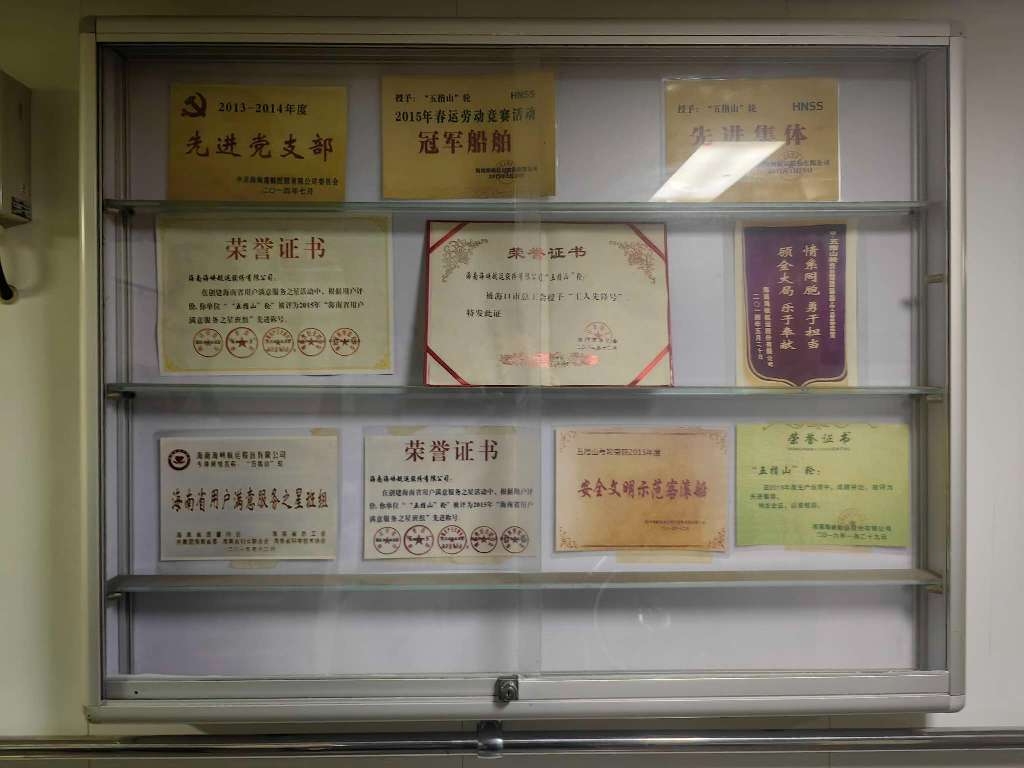 2013-2014年度
先进党支部
二〇一四年七月
授予：“五指山”轮
HNSS
2015年春运劳动竞赛活动
冠军船舶
授予：“五指山”轮
HNSS
先进集体
荣誉证书
海南海峡航运股份有限公司：
在创建海南省用户满意服务之星活动中，根据用户评
价，你单位“五指山”轮”被评为2015年“海南省用户
满意服务之星班组”先进称号
荣誉证书
海南海峡航运股份有限公司“五指山”轮：
被海口市总工会授予“工人先锋号”，
特发此证
情系同胞 勇于担当
顾全大局 乐于奉献
海南海峡航运股份有限公司
二〇一四年五月二十日
海南海峡航运股份有限公司
海南省用户满意服务之星班组
荣誉证书
海南海峡航运股份有限公司：
在创建海南省用户满意服务之星活动中，根据用户评
价，你单位“五指山”轮”被评为2015年“海南省用户
满意服务之星班组”先进称号
安全文明示范客滚船
荣誉证书
“五指山”轮：
先进集体。
特发此证，以资鼓励。
海南海峡航运股份有限公司
二〇一六年一月二十九日